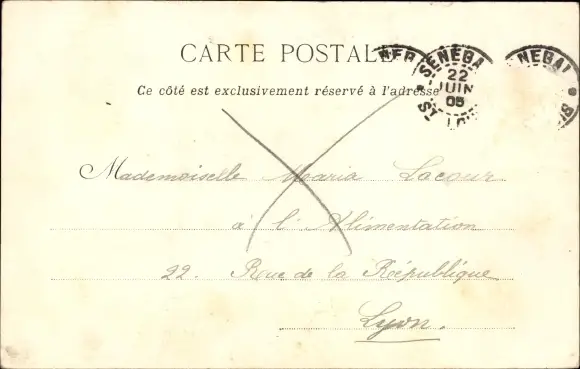 CARTE POSTALE
SENEGAL
22
JUIN
05
ST LOUIS
Ce côté est exclusivement réservé à l'adresse
Mademoiselle Maria Lacour
à l'Alimentation
22. Rue de la République
Lyon.